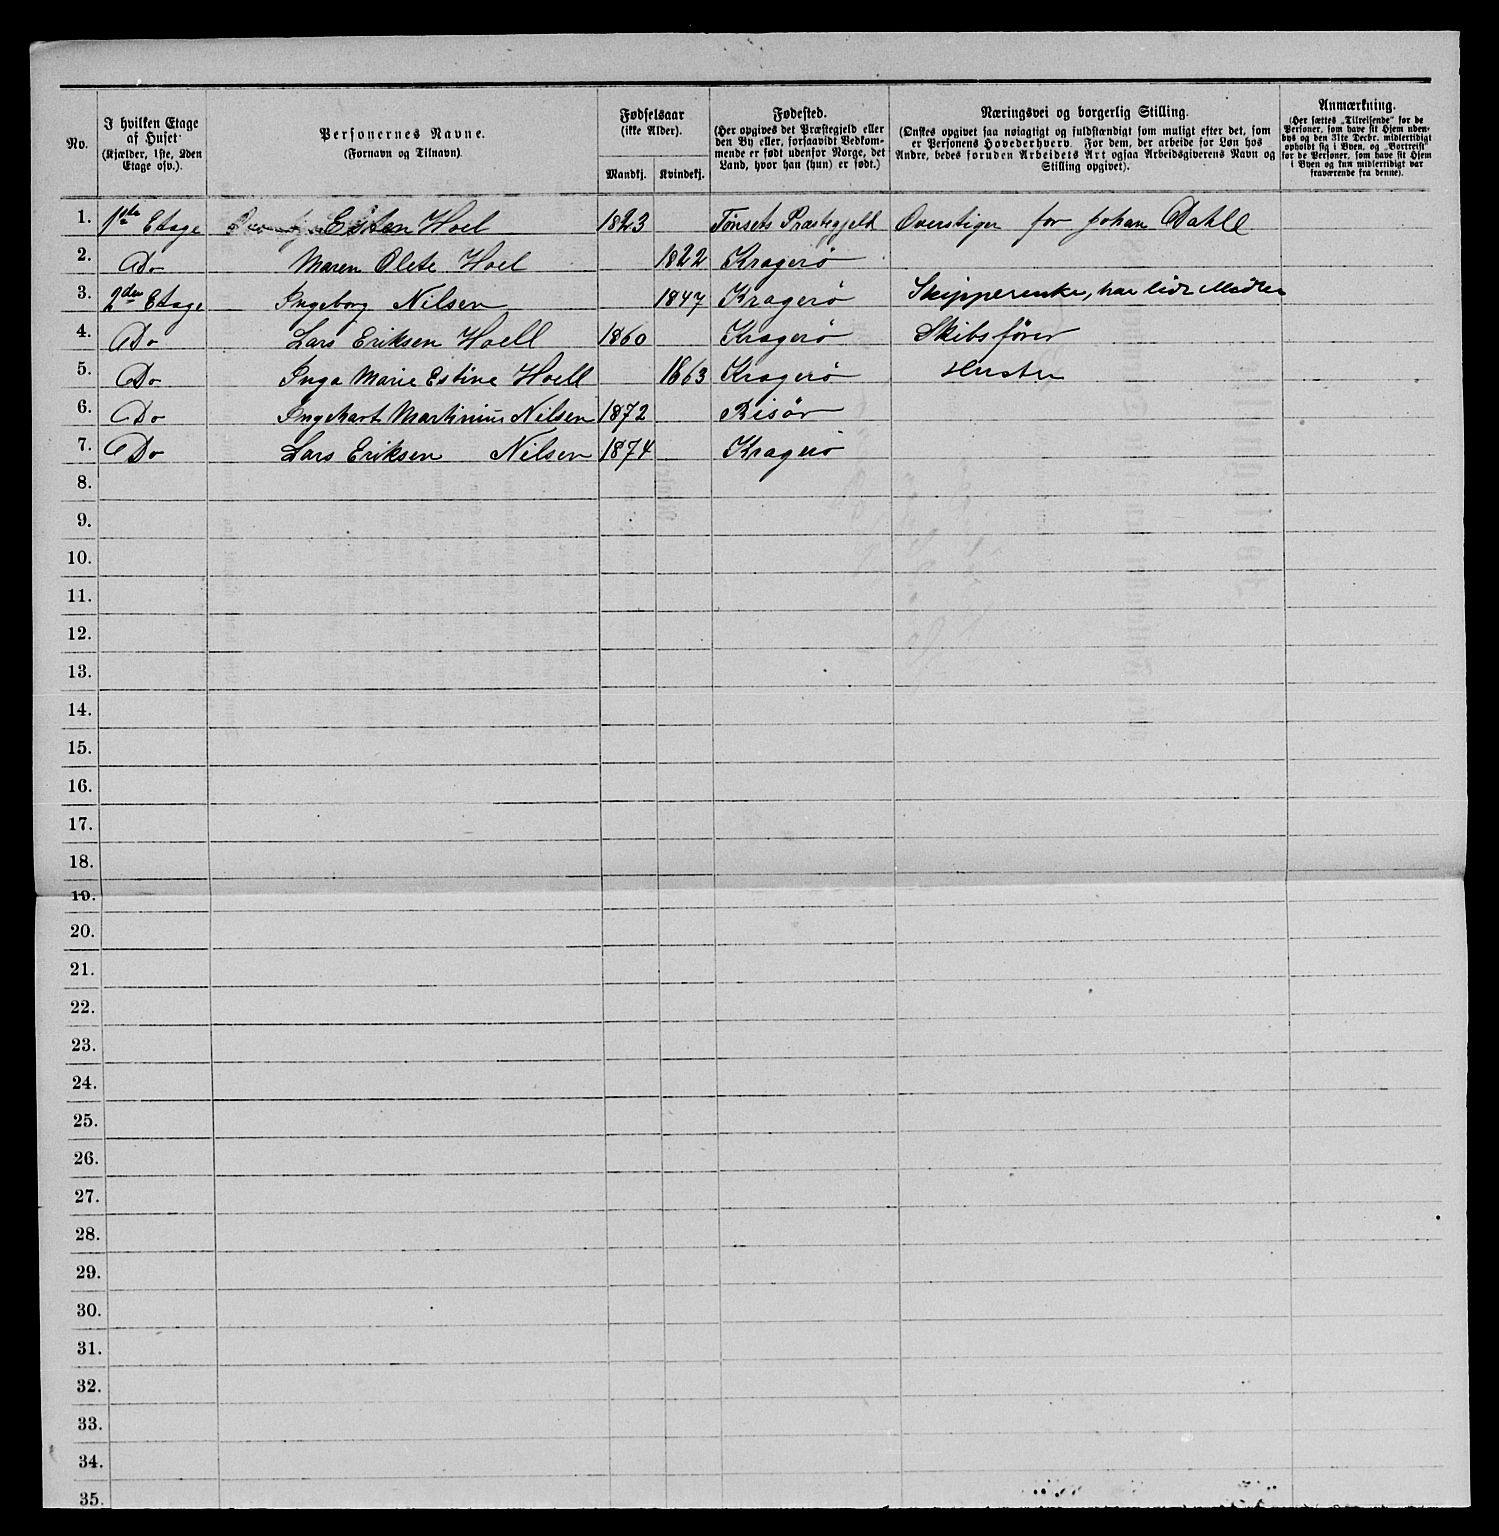 No.
I hvilken Etage
af Huset
(Kjælder, 1ste, 2den
Etage osv.).
Personernes Navne.
(Fornavn og Tilnavn).
Fødselsaar
(ikke Alder).
Mandkj. Kvindekj.
Fødested.
(Her opgives det Præstegjeld eller
den By eller, forsaavidt Vedkom-
mende er født udenfor Norge, det
Land, hvor han (hun) er født.)
Næringsvei og borgerlig Stilling.
(Ønskes opgivet saa nøiagtigt og fuldstændigt som muligt efter det, som
er Personens Hovederhverv. For dem, der arbeide for Løn hos
Andre, bedes foruden Arbeidets Art ogsaa Arbeidsgiverens Navn og
Stilling opgivet).
Anmærkning.
(Her sættes „Tilreisende" for de
Personer, som have sit Hjem uden-
bys og den 31te Decbr. midlertidigt
opholdt sig i Byen, og „Bortreist"
for de Personer, som have sit Hjem
i Byen og kun midlertidigt var
fraværende fra denne).
1. 1ste Etage Esten Hoel 1823 Tønsets Præstegjeld Overstiger for Johan Dahll
2. Do Maren Olete Hoel 1822 Kragerö
3. 2den Etage Ingeborg Nilsen 1847 Kragerö Skipperenke, har lidt Midler
4. Do Lars Eriksen Hoell 1860 Kragerö Skibsfører
5. Do Inga Marie Estine Hoell 1863 Kragerö Hustru
6. Do Ingehart Martinius Nilsen 1872 Risör
7. Do Lars Eriksen Nilsen 1874 Kragerö
8.
9.
10.
11.
12.
13.
14.
15.
16.
17.
18.
19.
20.
21.
22.
23.
24.
25.
26.
27.
28.
29.
30.
31.
32.
33.
34.
35.